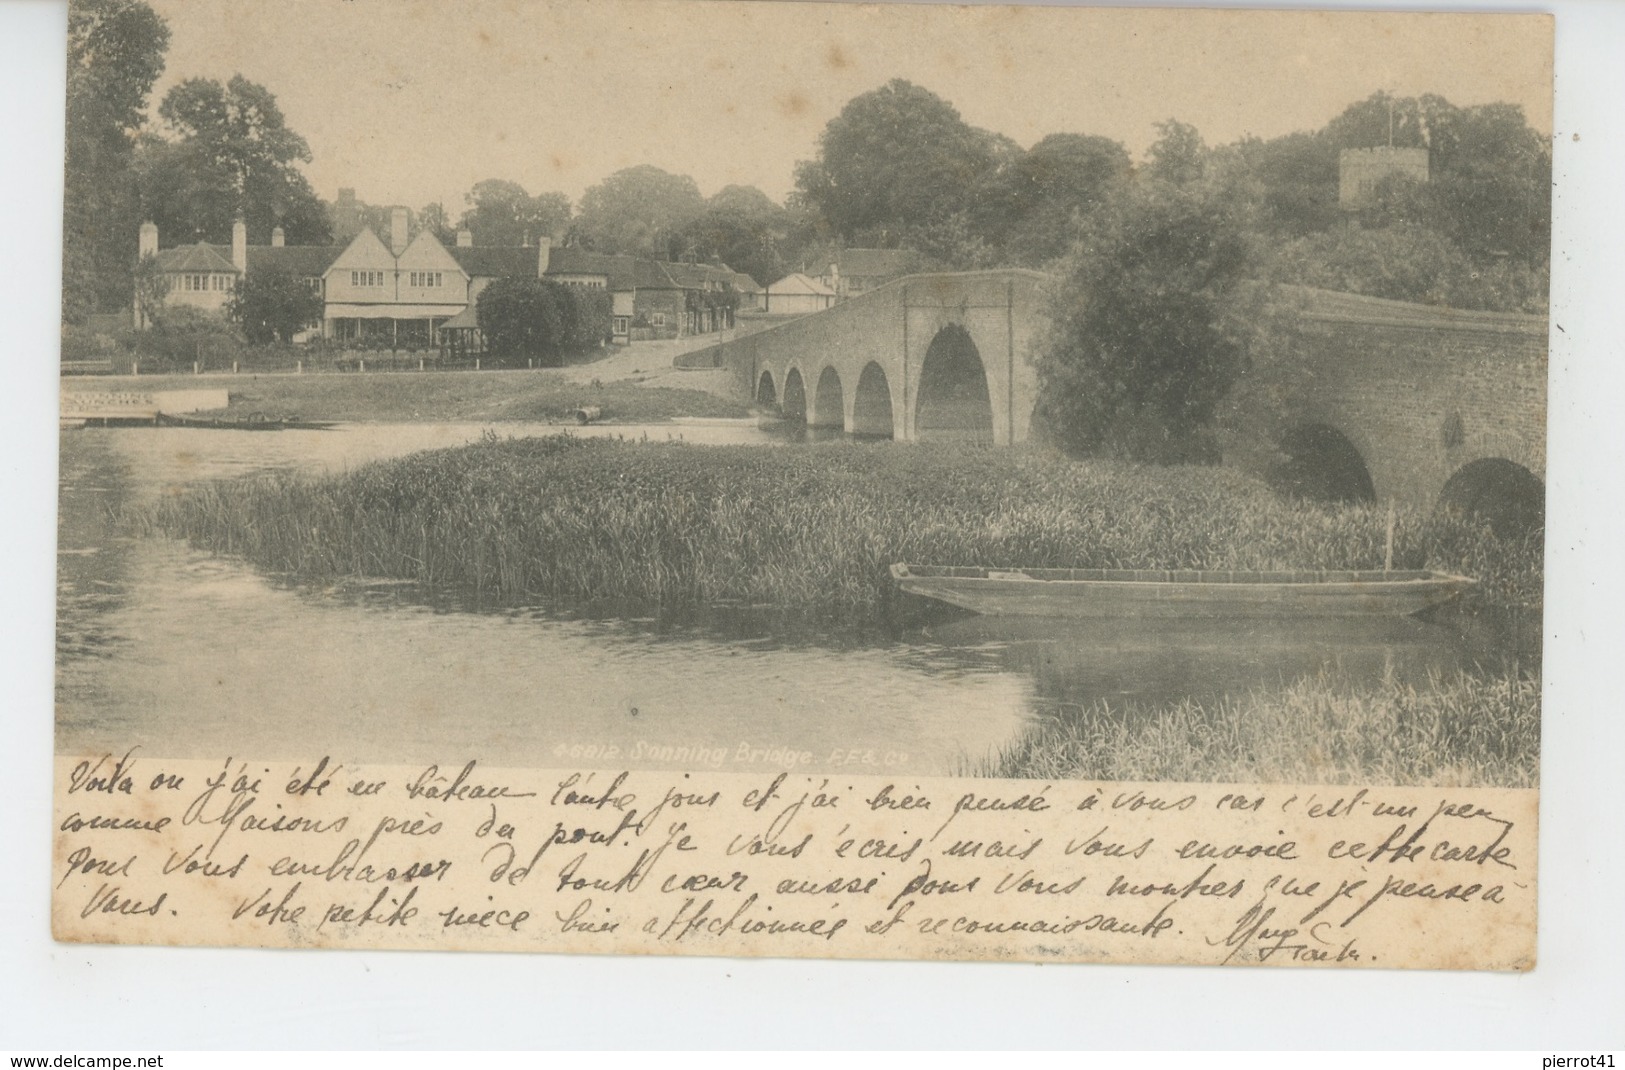 SONNING
LAUNCHES
46012 Sonning Bridge F.F.& Co
Voilà où j'ai été en bâteau l'autre jour et j'ai bien pensé à vous car c'est un peu
comme Maisons près du pont. Je vous écris mais vous envoie cette carte
pour vous embrasser de tout cœur aussi pour vous montrer que je pense à
vous. Votre petite nièce bien affectionnée et reconnaissante.
www.delcampe.net
pierrot41